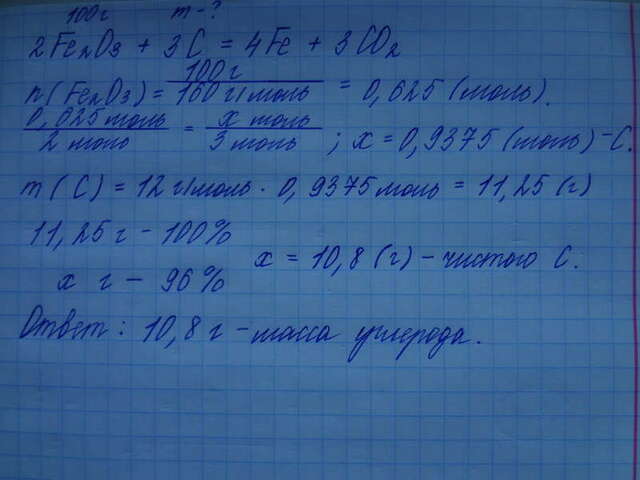 100г m-?
2Fe₂O₃ + 3C = 4Fe + 3CO₂
n(Fe₂O₃) = 100г / 160 г/моль = 0,625 (моль).
0,625 моль / 2 моль = x моль / 3 моль ; x = 0,9375 (моль) - C.
m(C) = 12 г/моль · 0,9375 моль = 11,25 (г)
11,25 г - 100%
x г - 96% x = 10,8 (г) - чистого C.
Ответ: 10,8 г - масса углерода.